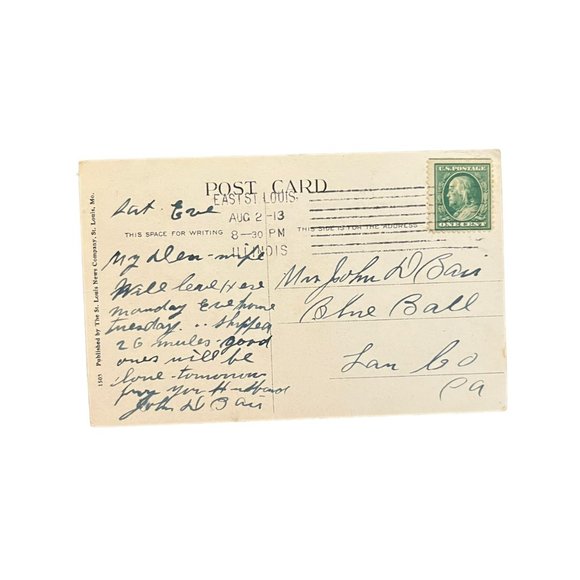 POST CARD
EAST ST. LOUIS,
AUG 2-13
8-30 PM
ILLINOIS
U.S. POSTAGE
ONE CENT
THIS SPACE FOR WRITING
THIS SIDE IS FOR THE ADDRESS
1503 Published by The St. Louis News Company, St. Louis, Mo.
Sat. Eve
My Dear wife
Will leave Here
Monday Eve home
tuesday .. shipped
26 mules good
ones will be
home tomorrow
from your Husband
John D Bair
Mrs John D Bair
Blue Ball
Lan Co
Pa